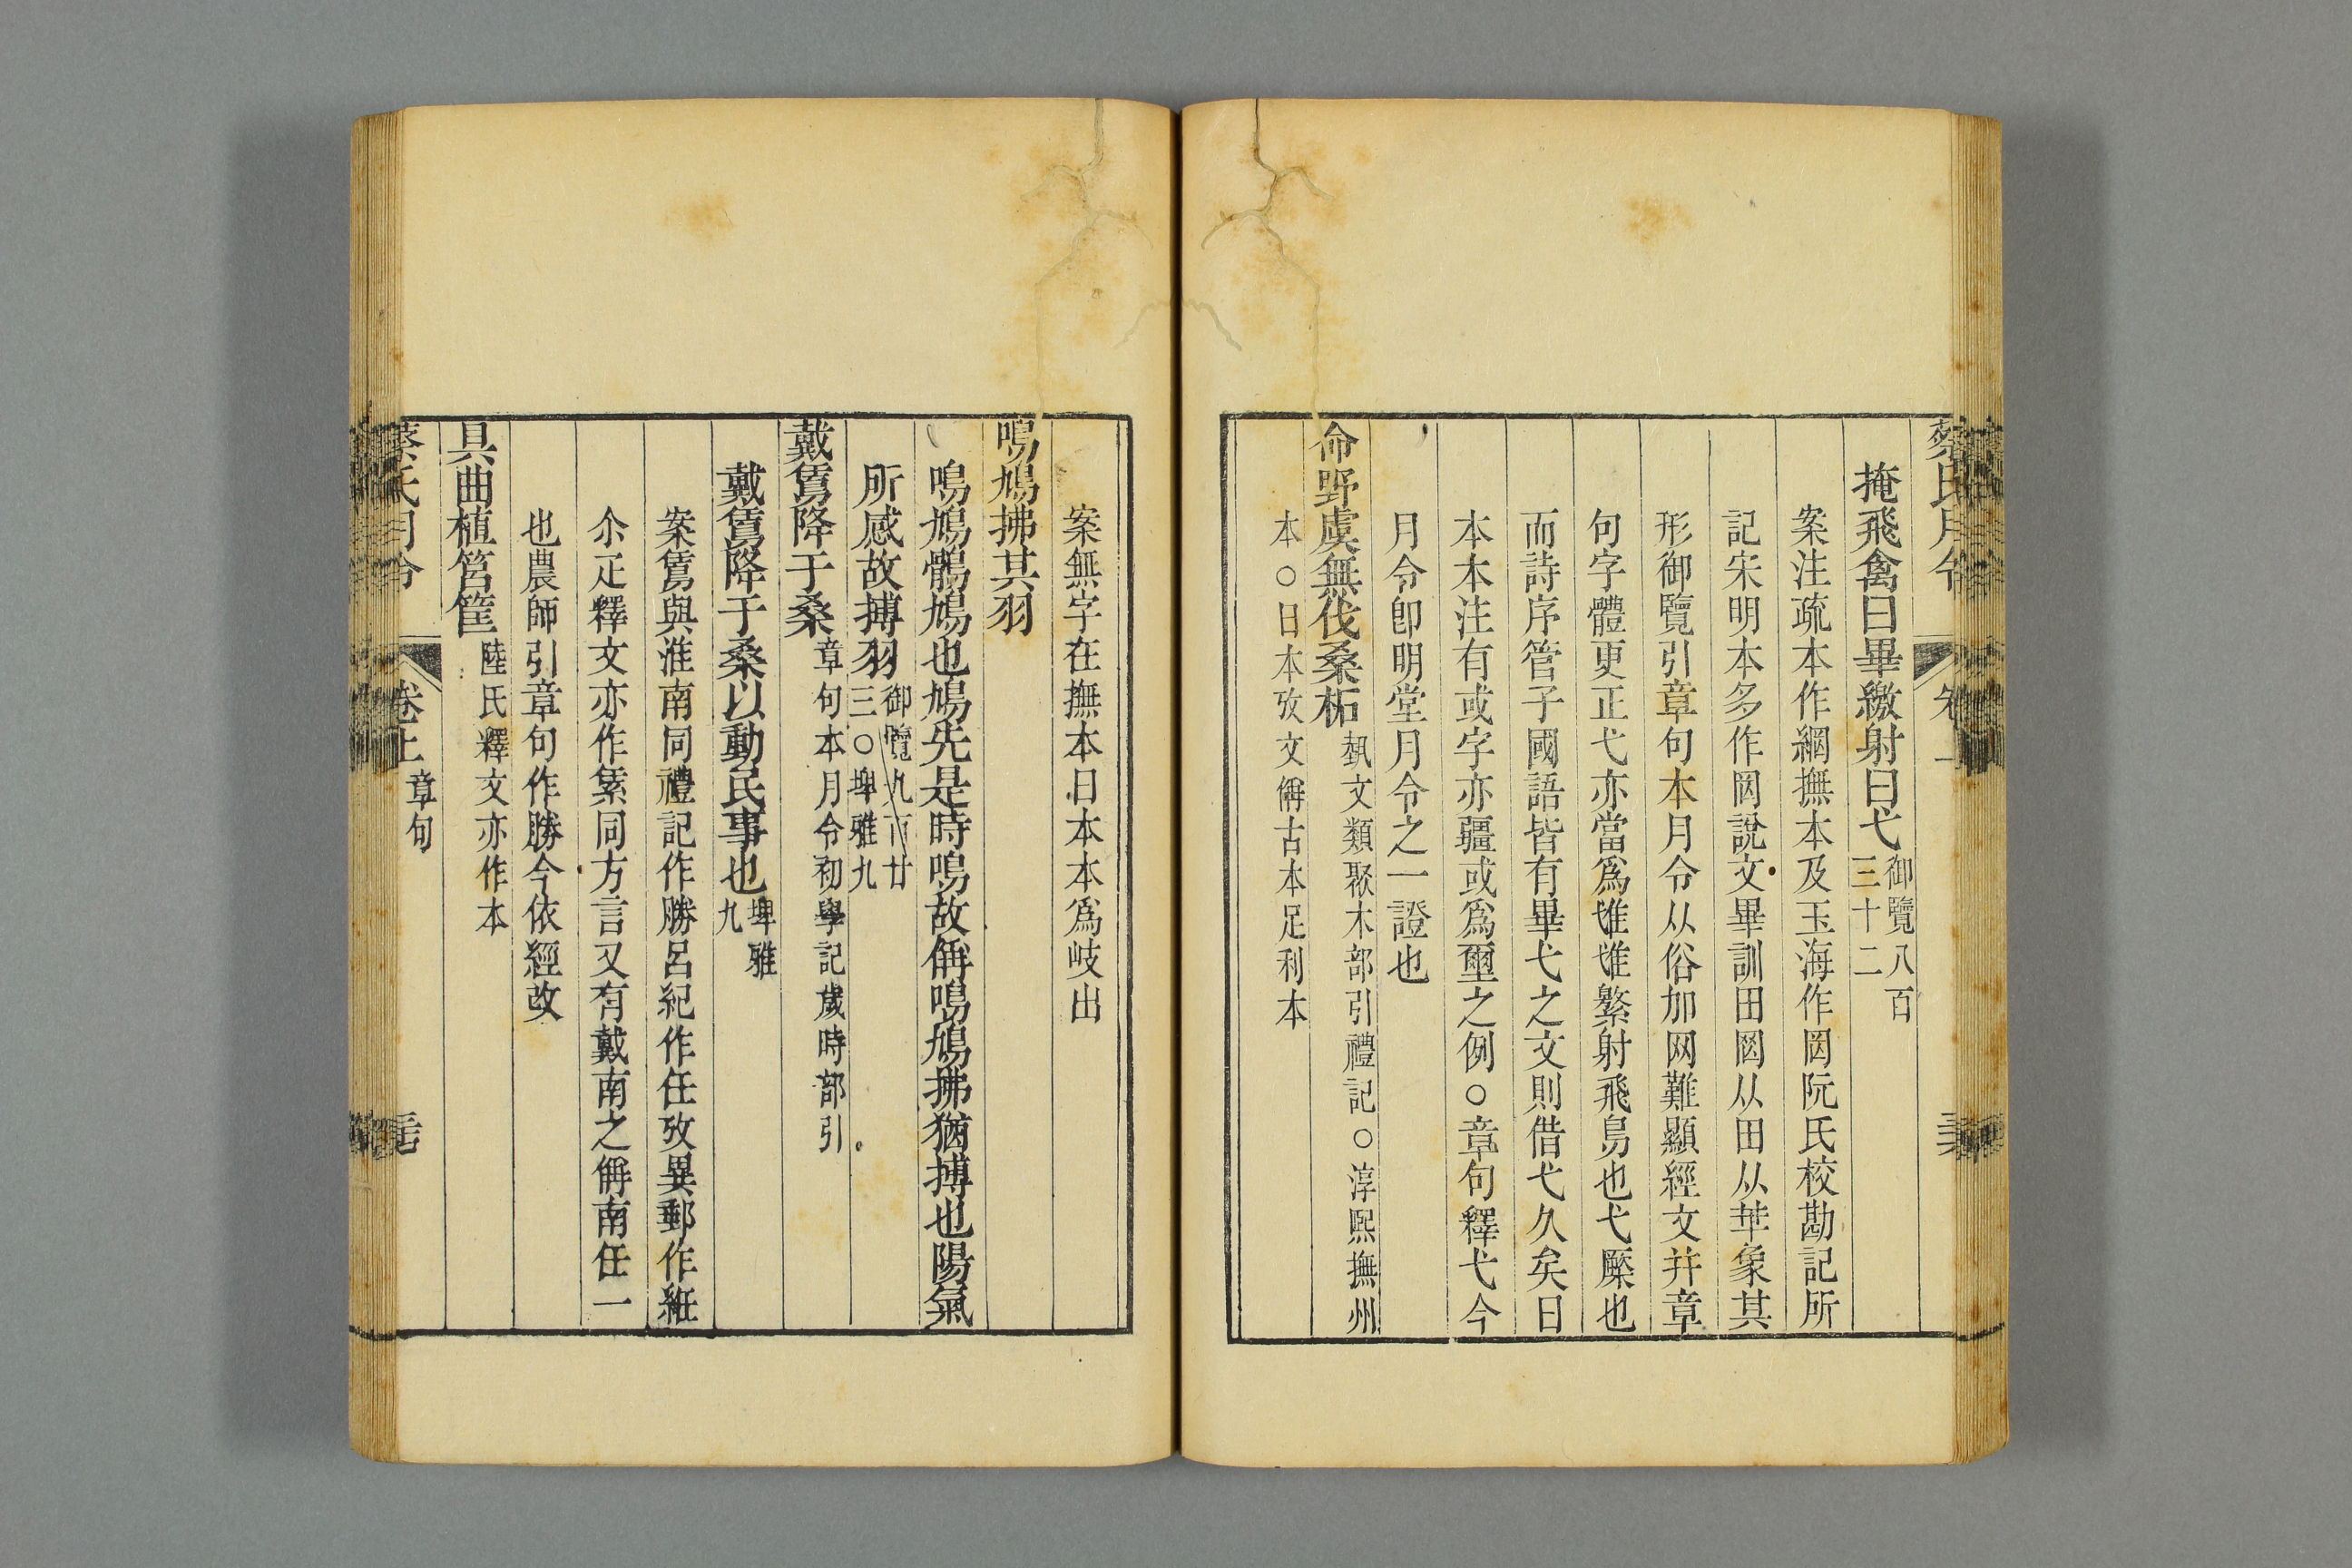 蔡氏月令
掩飛禽曰畢繳射曰弋御覽八百三十二
案注疏本作網撫本及玉海作罔阮氏校勘記所
記宋明本多作罔說文畢訓田罔从田从𠦒象其
形御覽引章句本月令从俗加网難顯經文并章
句字體更正弋亦當爲隿隿繁射飛鳥也弋橜也
而詩序管子國語皆有畢弋之文則借弋久矣日
本本注有或字亦疆或爲壐之例○章句釋弋今
月令卽明堂月令之一證也
命野虞無伐桑柘埶文類聚木部引禮記○淳熙撫州
本○日本攷文偁古本足利本
案無字在撫本日本本爲岐出
鳴鳩拂其羽
鳴鳩鶻鳩也鳩先是時鳴故偁鳴鳩拂猶搏也陽氣
所感故搏羽御覽九百廿三○埤雅九
戴鵀降于桑章句本月令初學記歲時部引
戴鵀降于桑以動民事也埤雅九
案鵀與淮南同禮記作勝呂紀作任攷異郵作紝
尒疋釋文亦作𥿮同方言又有戴南之偁南任一
也農師引章句作勝今依經改
具曲植筥筐陸氏釋文亦作本
蔡氏月令
卷上
章句